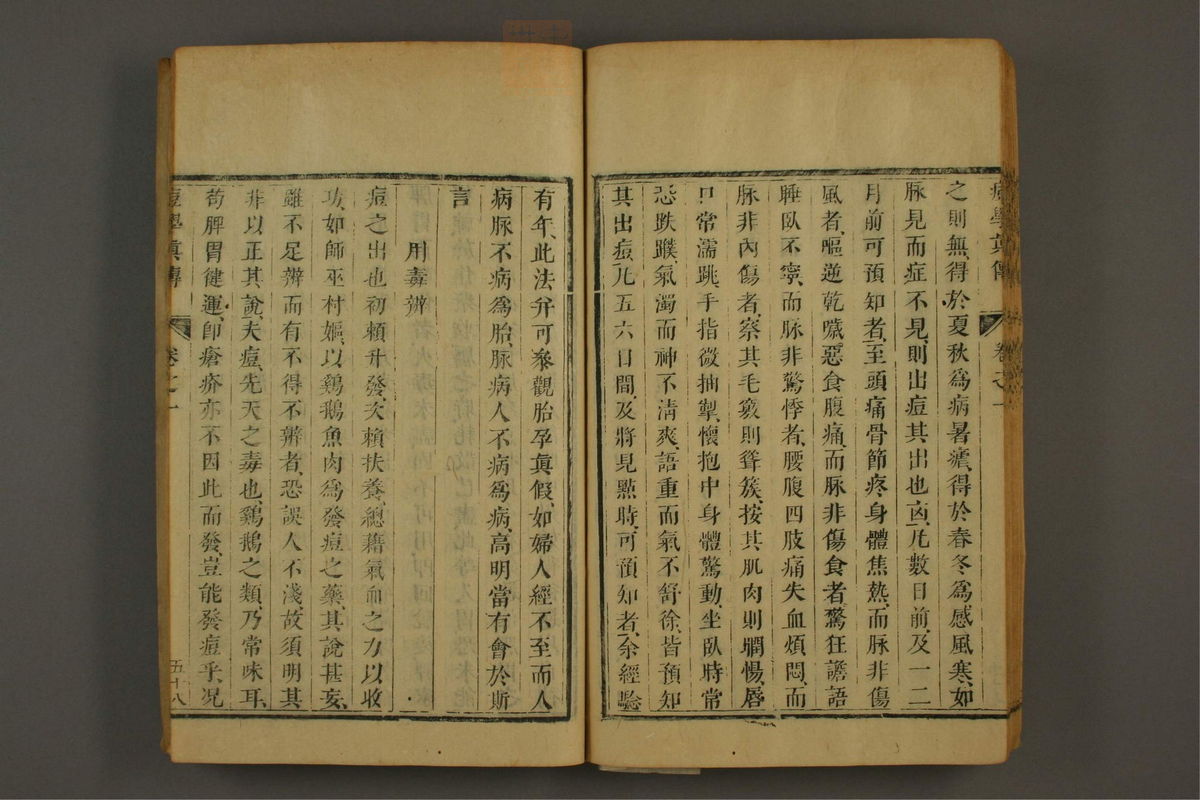 痘學眞傳 卷之一
之則無、得於夏秋爲病暑瘧、得於春冬爲感風寒、如
脉見而症不見、則出痘、其出也、凶、凡數日前、及一二
月前可預知者、至頭痛骨節疼身體焦熱、而脉非傷
風者、嘔逆乾噦惡食腹痛、而脉非傷食者、驚狂譫語
睡卧不寧、而脉非驚悸者、腰腹四肢痛失血煩悶、而
脉非內傷者、察其毛髮則聳簇、按其肌肉則瞤惕、唇
口常濡跳、手指微抽掣、懷抱中身體驚動、坐臥時常
恐跌蹼、氣濁而神不淸爽、語重而氣不舒徐、皆預知
其出痘、凡五六日間、及將見點時、可預知者、余經驗
有年、此法弁可叅觀胎孕眞假、如婦人經不至而人
病脉不病爲胎、脉病人不病爲病、高明當有會於斯
言
用毒辨
痘之出也初賴升發、次賴扶養、總藉氣血之力以收
功、如師巫村嫗、以鷄鵝魚肉爲發痘之藥、其說甚妄、
雖不足辨而有不得不辨者、恐誤人不淺、故須明其
非以正其說、夫痘、先天之毒也、鷄鵝之類、乃常味耳、
苟脾胃健運、卽瘡疥亦不因此而發、豈能發痘乎、况
痘學眞傳 卷之一 五十八